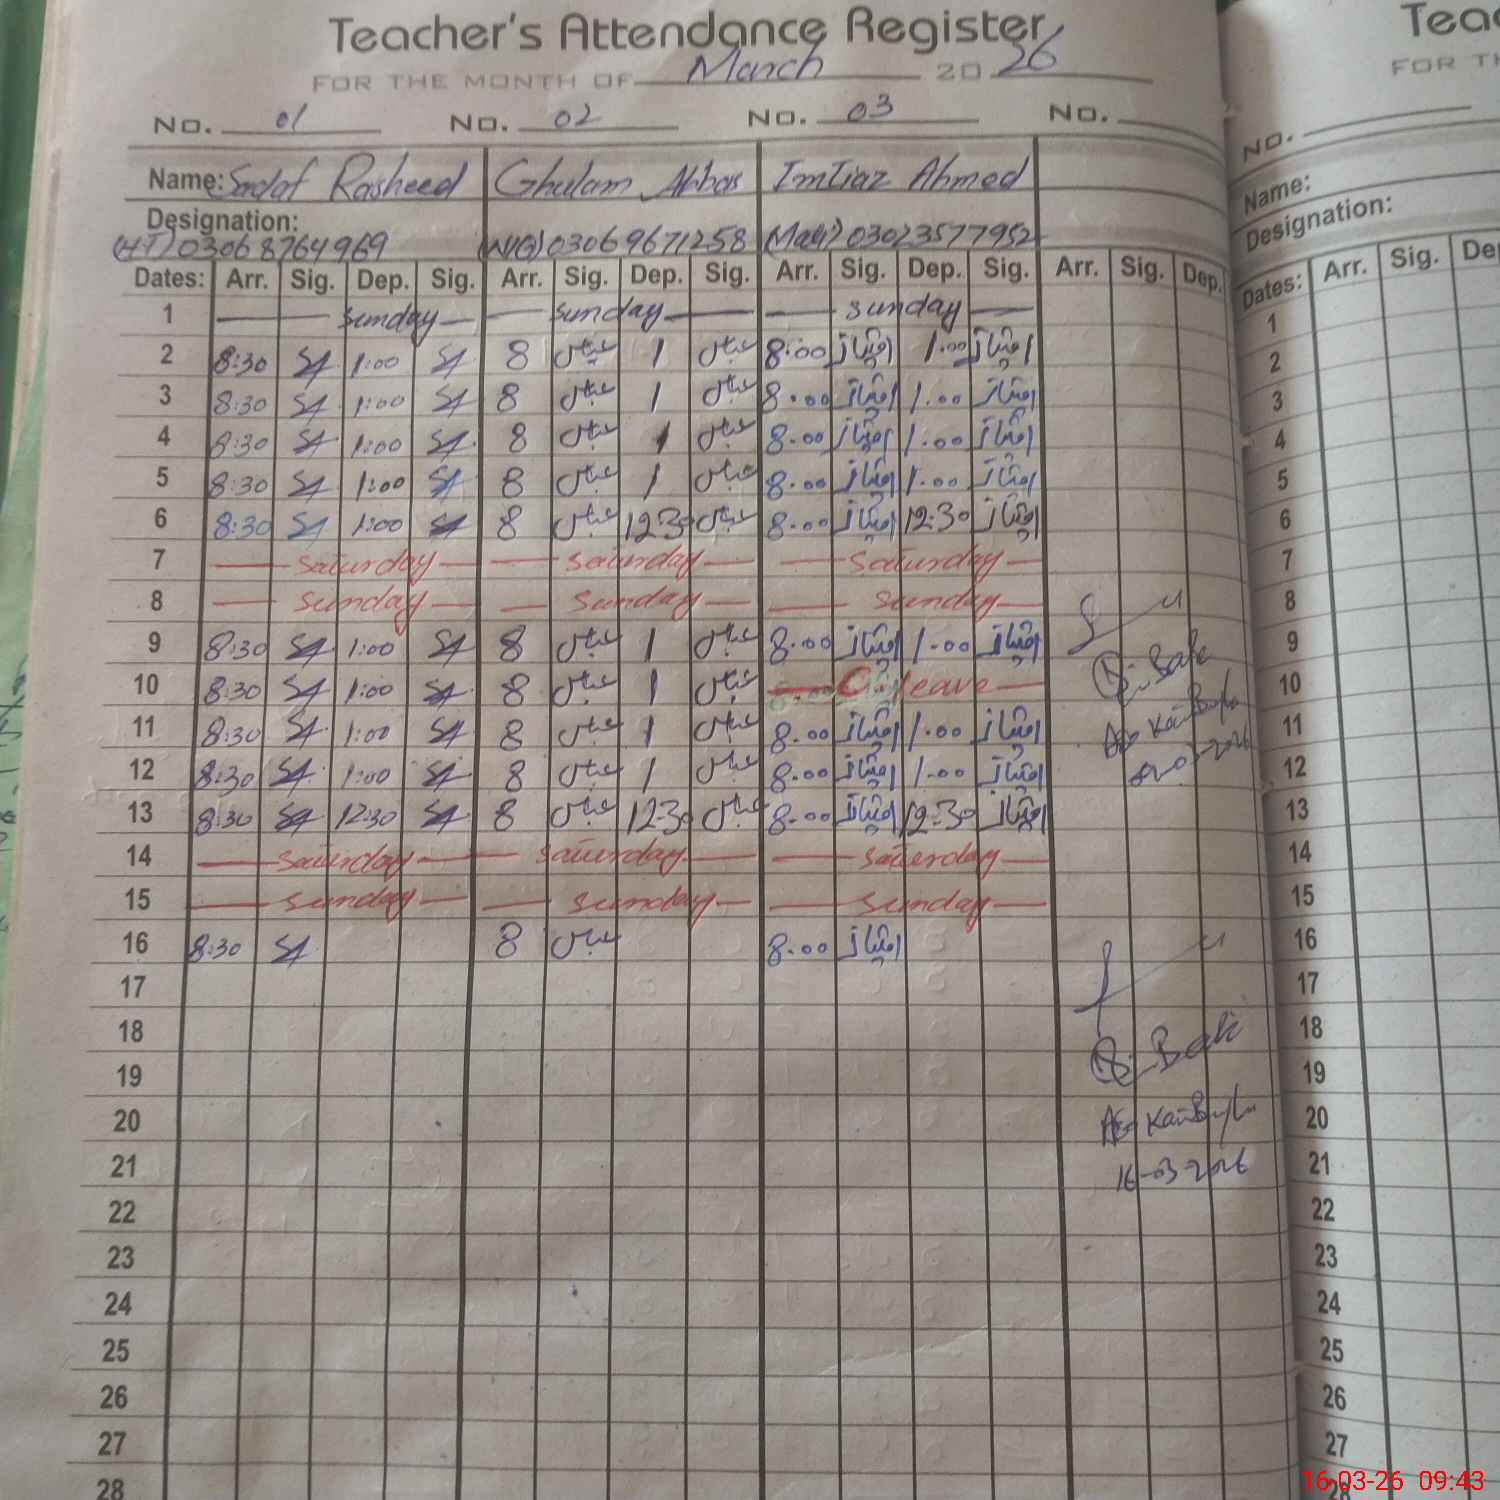 Teacher's Attendance Register
FOR THE MONTH OF March 2026
No. 01 No. 02 No. 03 No.
Name: Sadaf Rasheed Ghulam Abbas Imtiaz Ahmed
Designation:
(HT) 03068764969 (N/Q) 03069671258 (Mali) 03023577952
Dates: Arr. Sig. Dep. Sig. Arr. Sig. Dep. Sig. Arr. Sig. Dep. Sig. Arr. Sig. Dep.
1 Sunday Sunday Sunday
2 8:30 SA 1:00 SA 8 عباس 1 عباس 8:00 امتیاز 1:00 امتیاز
3 8:30 SA 1:00 SA 8 عباس 1 عباس 8.00 امتیاز 1.00 امتیاز
4 8:30 SA 1:00 SA 8 عباس 1 عباس 8.00 امتیاز 1.00 امتیاز
5 8:30 SA 1:00 SA 8 عباس 1 عباس 8.00 امتیاز 1.00 امتیاز
6 8:30 SA 1:00 SA 8 عباس 12:30 عباس 8.00 امتیاز 12:30 امتیاز
7 Saturday Saturday Saturday
8 Sunday Sunday Sunday
9 8:30 SA 1:00 SA 8 عباس 1 عباس 8.00 امتیاز 1.00 امتیاز
10 8:30 SA 1:00 SA 8 عباس 1 عباس C. leave
11 8:30 SA 1:00 SA 8 عباس 1 عباس 8.00 امتیاز 1.00 امتیاز
12 8:30 SA 1:00 SA 8 عباس 1 عباس 8.00 امتیاز 1.00 امتیاز
13 8:30 SA 12:30 SA 8 عباس 12:30 عباس 8.00 امتیاز 12:30 امتیاز
14 Saturday Saturday Saturday
15 Sunday Sunday Sunday
16 8:30 SA 8 عباس 8.00 امتیاز
17
18
19
20
21
22
23
24
25
26
27
28
16-03-2026
Teac
FOR TH
No.
Name:
Designation:
Dates: Arr. Sig. De
1
2
3
4
5
6
7
8
9
10
11
12
13
14
15
16
17
18
19
20
21
22
23
24
25
26
27
28
16-03-26 09:43